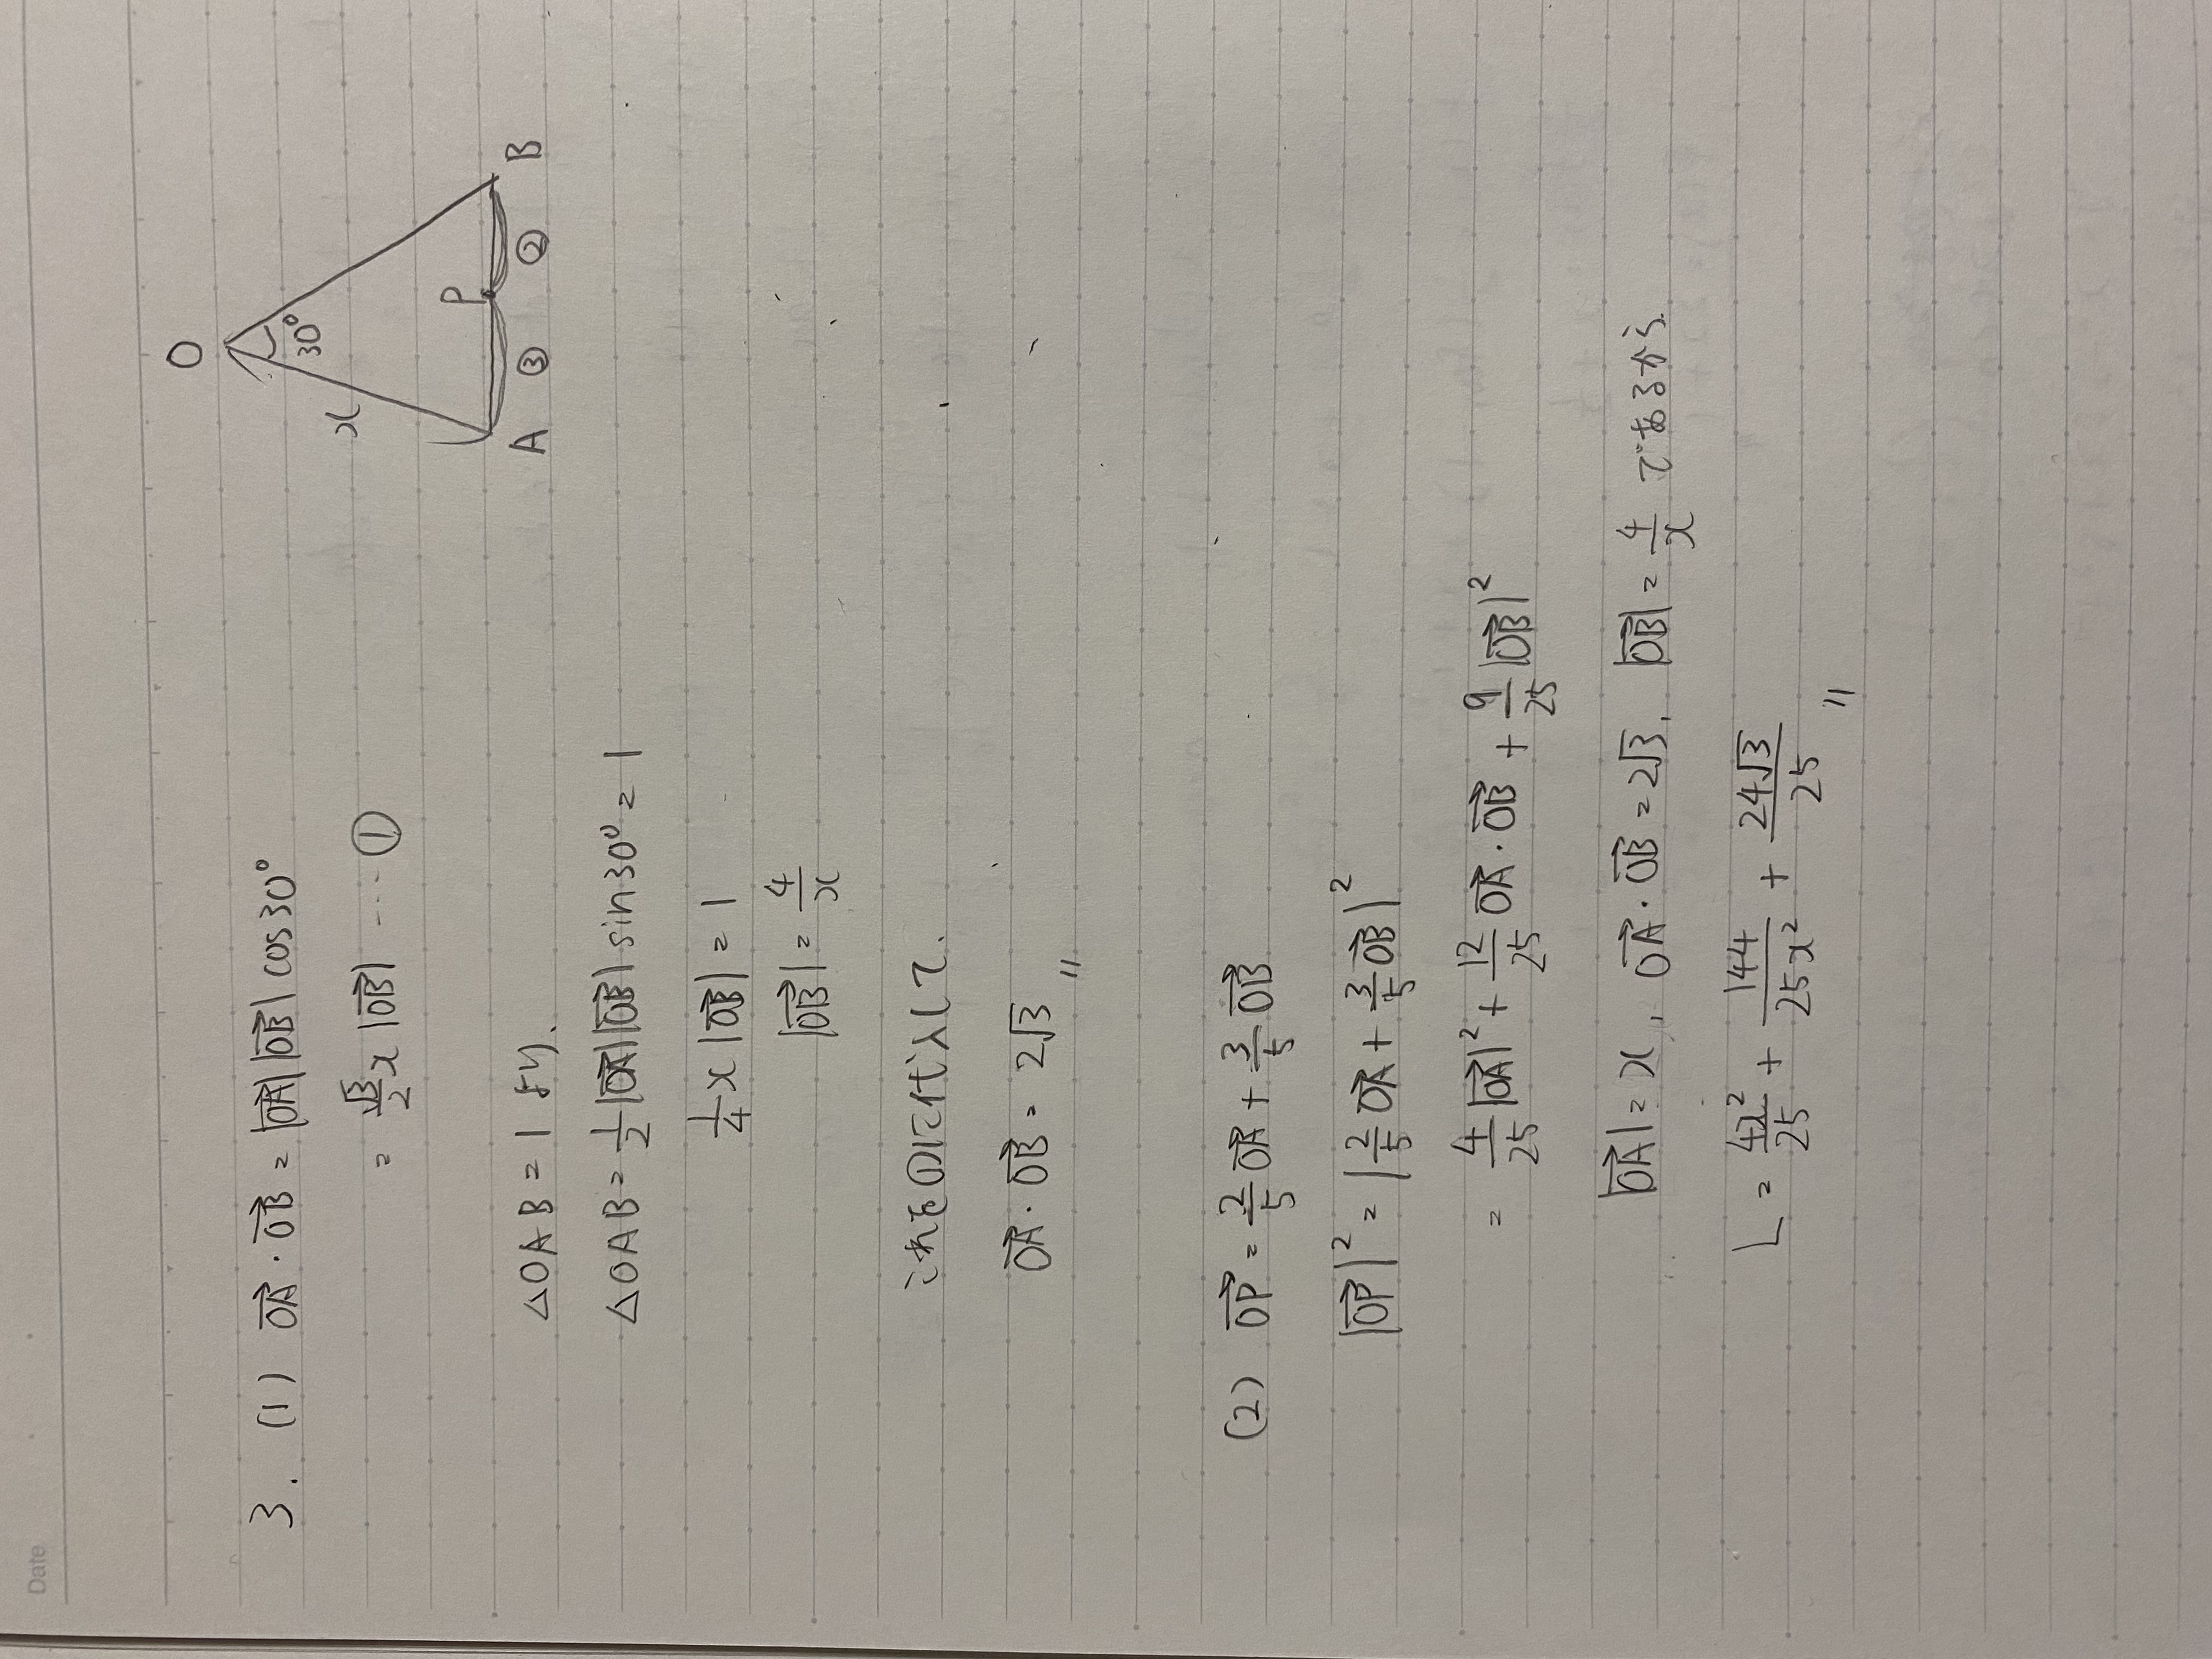 Date
3. (1) OA→・OB→ = |OA→||OB→| cos30°
= √3/2 x |OB→| ---- ①
△OAB = 1 より、
△OAB = 1/2 |OA→||OB→| sin30° = 1
1/4 x |OB→| = 1
|OB→| = 4/x
これを①に代入して、
OA→・OB→ = 2√3 〃
O
x
30°
P
A
③
②
B
(2) OP→ = 2/5 OA→ + 3/5 OB→
|OP→|² = |2/5 OA→ + 3/5 OB→|²
= 4/25 |OA→|² + 12/25 OA→・OB→ + 9/25 |OB→|²
|OA→| = x, OA→・OB→ = 2√3, |OB→| = 4/x であるから、
L = 4x²/25 + 144/25x² + 24√3/25 〃